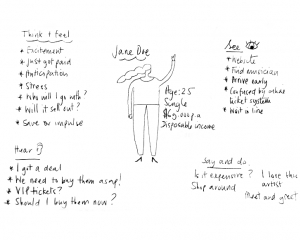 Think + feel
* Excitement
* Just got paid
* Anticipation
* Stress
* Who will I go with?
* Will it sell out?
* Save or impulse
Jane Doe
Age: 25
Single
Disposable income
See
* Website
* Find musician
* Arrive early
* Confused by other
ticket systems
* Wait in line
Hear
* I got a deal
* We need to buy them asap!
* VIP tickets?
* Should I buy them now?
Say and do
Is it expensive?
Shop around
I love this
artist
meet and greet